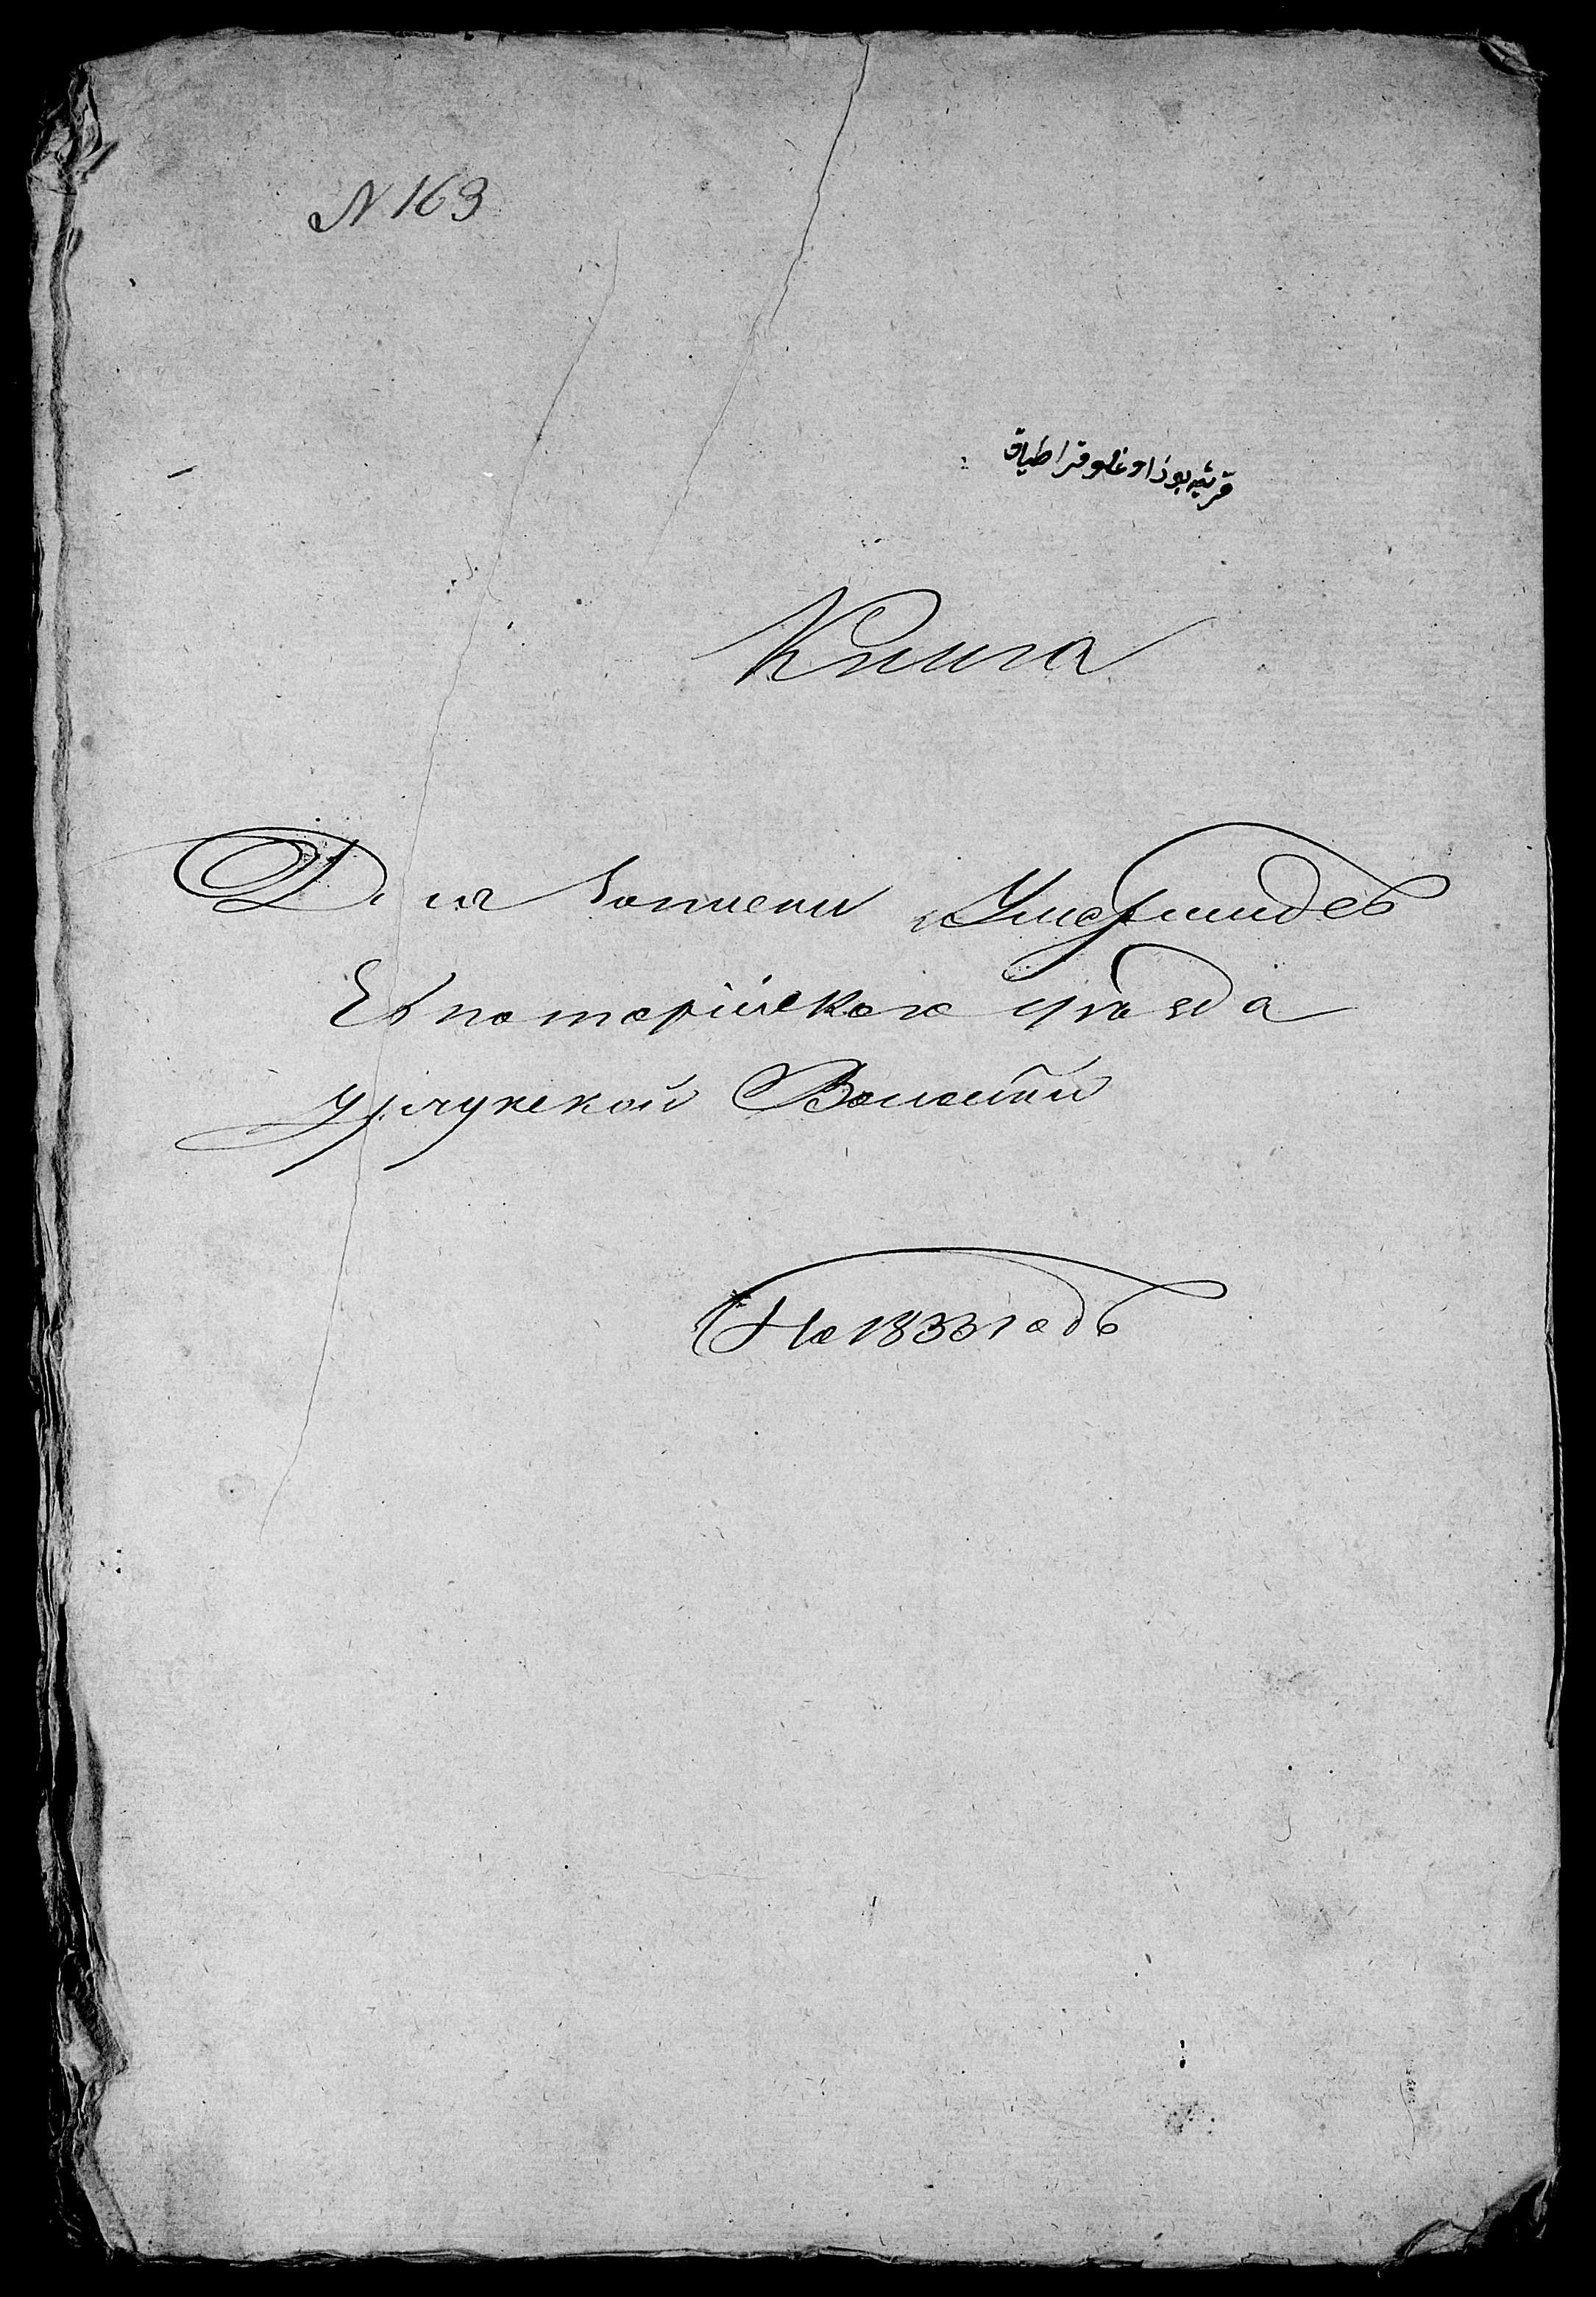 N 163
قریۀ بوز اوغلو قرا طیاق
Книга
Для записки Умершихъ
Евпаторійскаго уѣзда
Урчукской Волости
На 1833 годъ